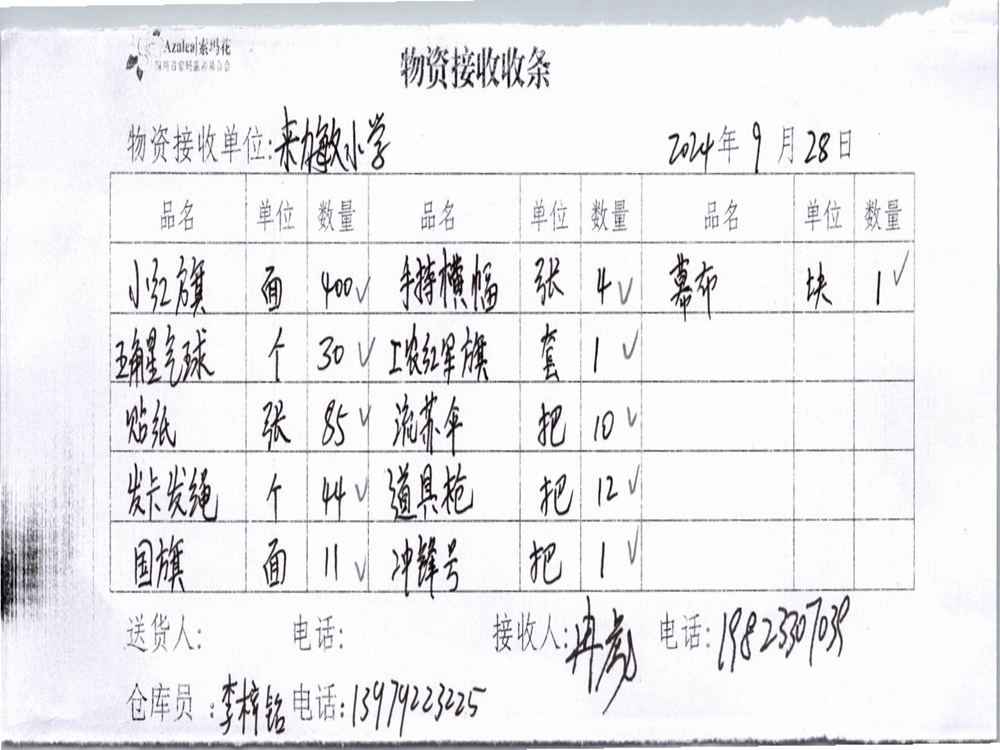 Azalea|索玛花
物资接收收条
物资接收单位:来力敏小学 2024年9月28日
品名 单位 数量 品名 单位 数量 品名 单位 数量
小红旗 面 400✓ 手持横幅 张 4✓ 幕布 块 1✓
五角星气球 个 30✓ 工农红军旗 套 1✓
贴纸 张 85✓ 流苏伞 把 10✓
发卡发绳 个 44✓ 道具枪 把 12✓
国旗 面 11✓ 冲锋号 把 1✓
送货人: 电话: 接收人:冉彪 电话:19823307039
仓库员:李梓铭 电话:13979223225